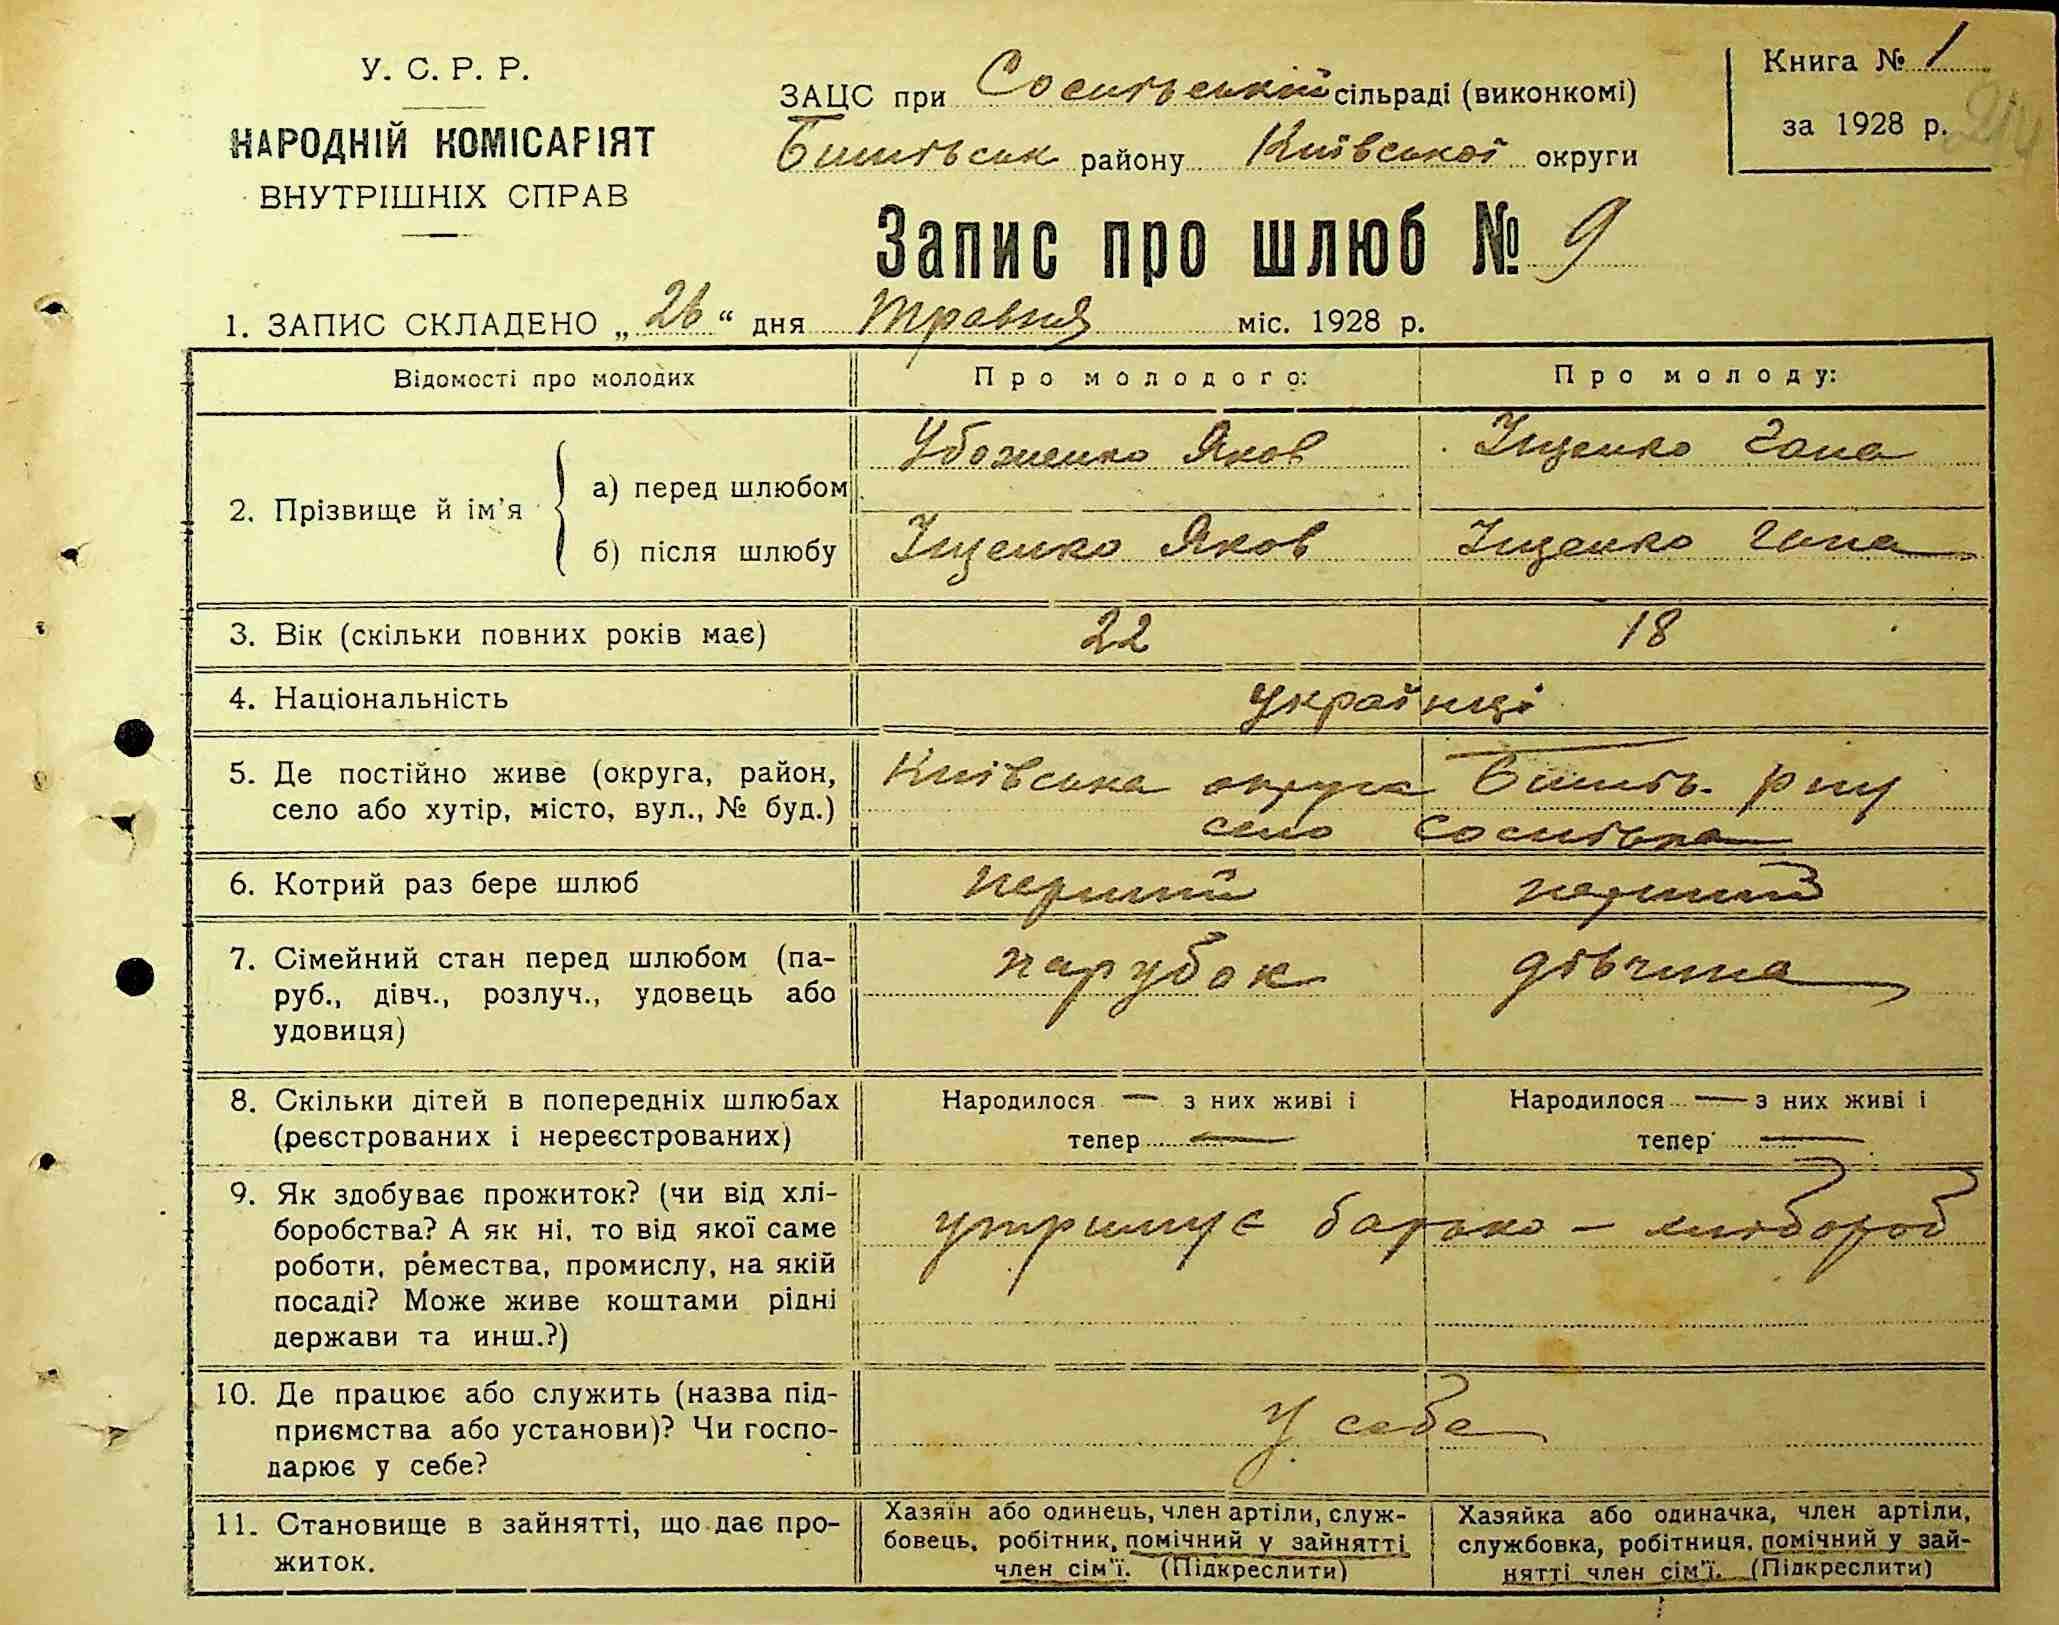 У. С. Р. Р.
НАРОДНІЙ КОМІСАРІЯТ
ВНУТРІШНІХ СПРАВ
ЗАЦС при Соситській сільраді (виконкомі)
Бишівськ району Київської округи
Книга № 1
за 1928 р.
214
Запис про шлюб № 9
1. ЗАПИС СКЛАДЕНО „26“ дня травня міс. 1928 р.
Відомості про молодих
Про молодого:
Про молоду:
2. Прізвище й ім'я
а) перед шлюбом
Убоженко Яков
Іщенко Гапа
б) після шлюбу
Іщенко Яков
Іщенко Гапа
3. Вік (скільки повних років має)
22
18
4. Національність
українці
5. Де постійно живе (округа, район,
село або хутір, місто, вул., № буд.)
Київська округа р-ну
село
6. Котрий раз бере шлюб
перший
перший
7. Сімейний стан перед шлюбом (па-
руб., дівч., розлуч., удовець або
удовиця)
парубок
дівчина
8. Скільки дітей в попередніх шлюбах
(реєстрованих і нереєстрованих)
Народилося — з них живі і
тепер —
Народилося — з них живі і
тепер —
9. Як здобуває прожиток? (чи від хлі-
боробства? А як ні, то від якої саме
роботи, ремества, промислу, на якій
посаді? Може живе коштами рідні
держави та инш.?)
утримує батько – хлібороб
10. Де працює або служить (назва під-
приємства або установи)? Чи госпо-
дарює у себе?
у себе
11. Становище в зайнятті, що дає про-
житок.
Хазяїн або одинець, член артіли, служ-
бовець, робітник, помічний у зайнятті
член сім'ї. (Підкреслити)
Хазяйка або одиначка, член артіли,
службовка, робітниця, помічний у зай-
нятті член сім'ї. (Підкреслити)